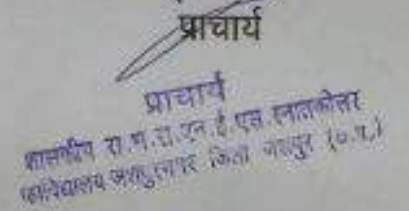 प्राचार्य
प्राचार्य
शासकीय रा.भ.रा.एन.ई.एस.स्नातकोत्तर
महाविद्यालय जशपुरनगर जिला जशपुर (छ.ग.)